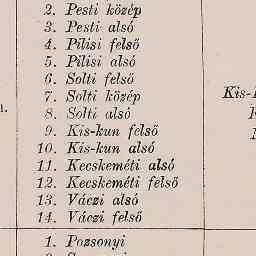 2. Pesti közép
3. Pesti alsó
4. Pilisi felső
5. Pilisi alsó
6. Solti felső
7. Solti közép
8. Solti alsó
9. Kis-kun felső
10. Kis-kun alsó
11. Kecskeméti alsó
12. Kecskeméti felső
13. Váczi alsó
14. Váczi felső
1. Pozsonyi